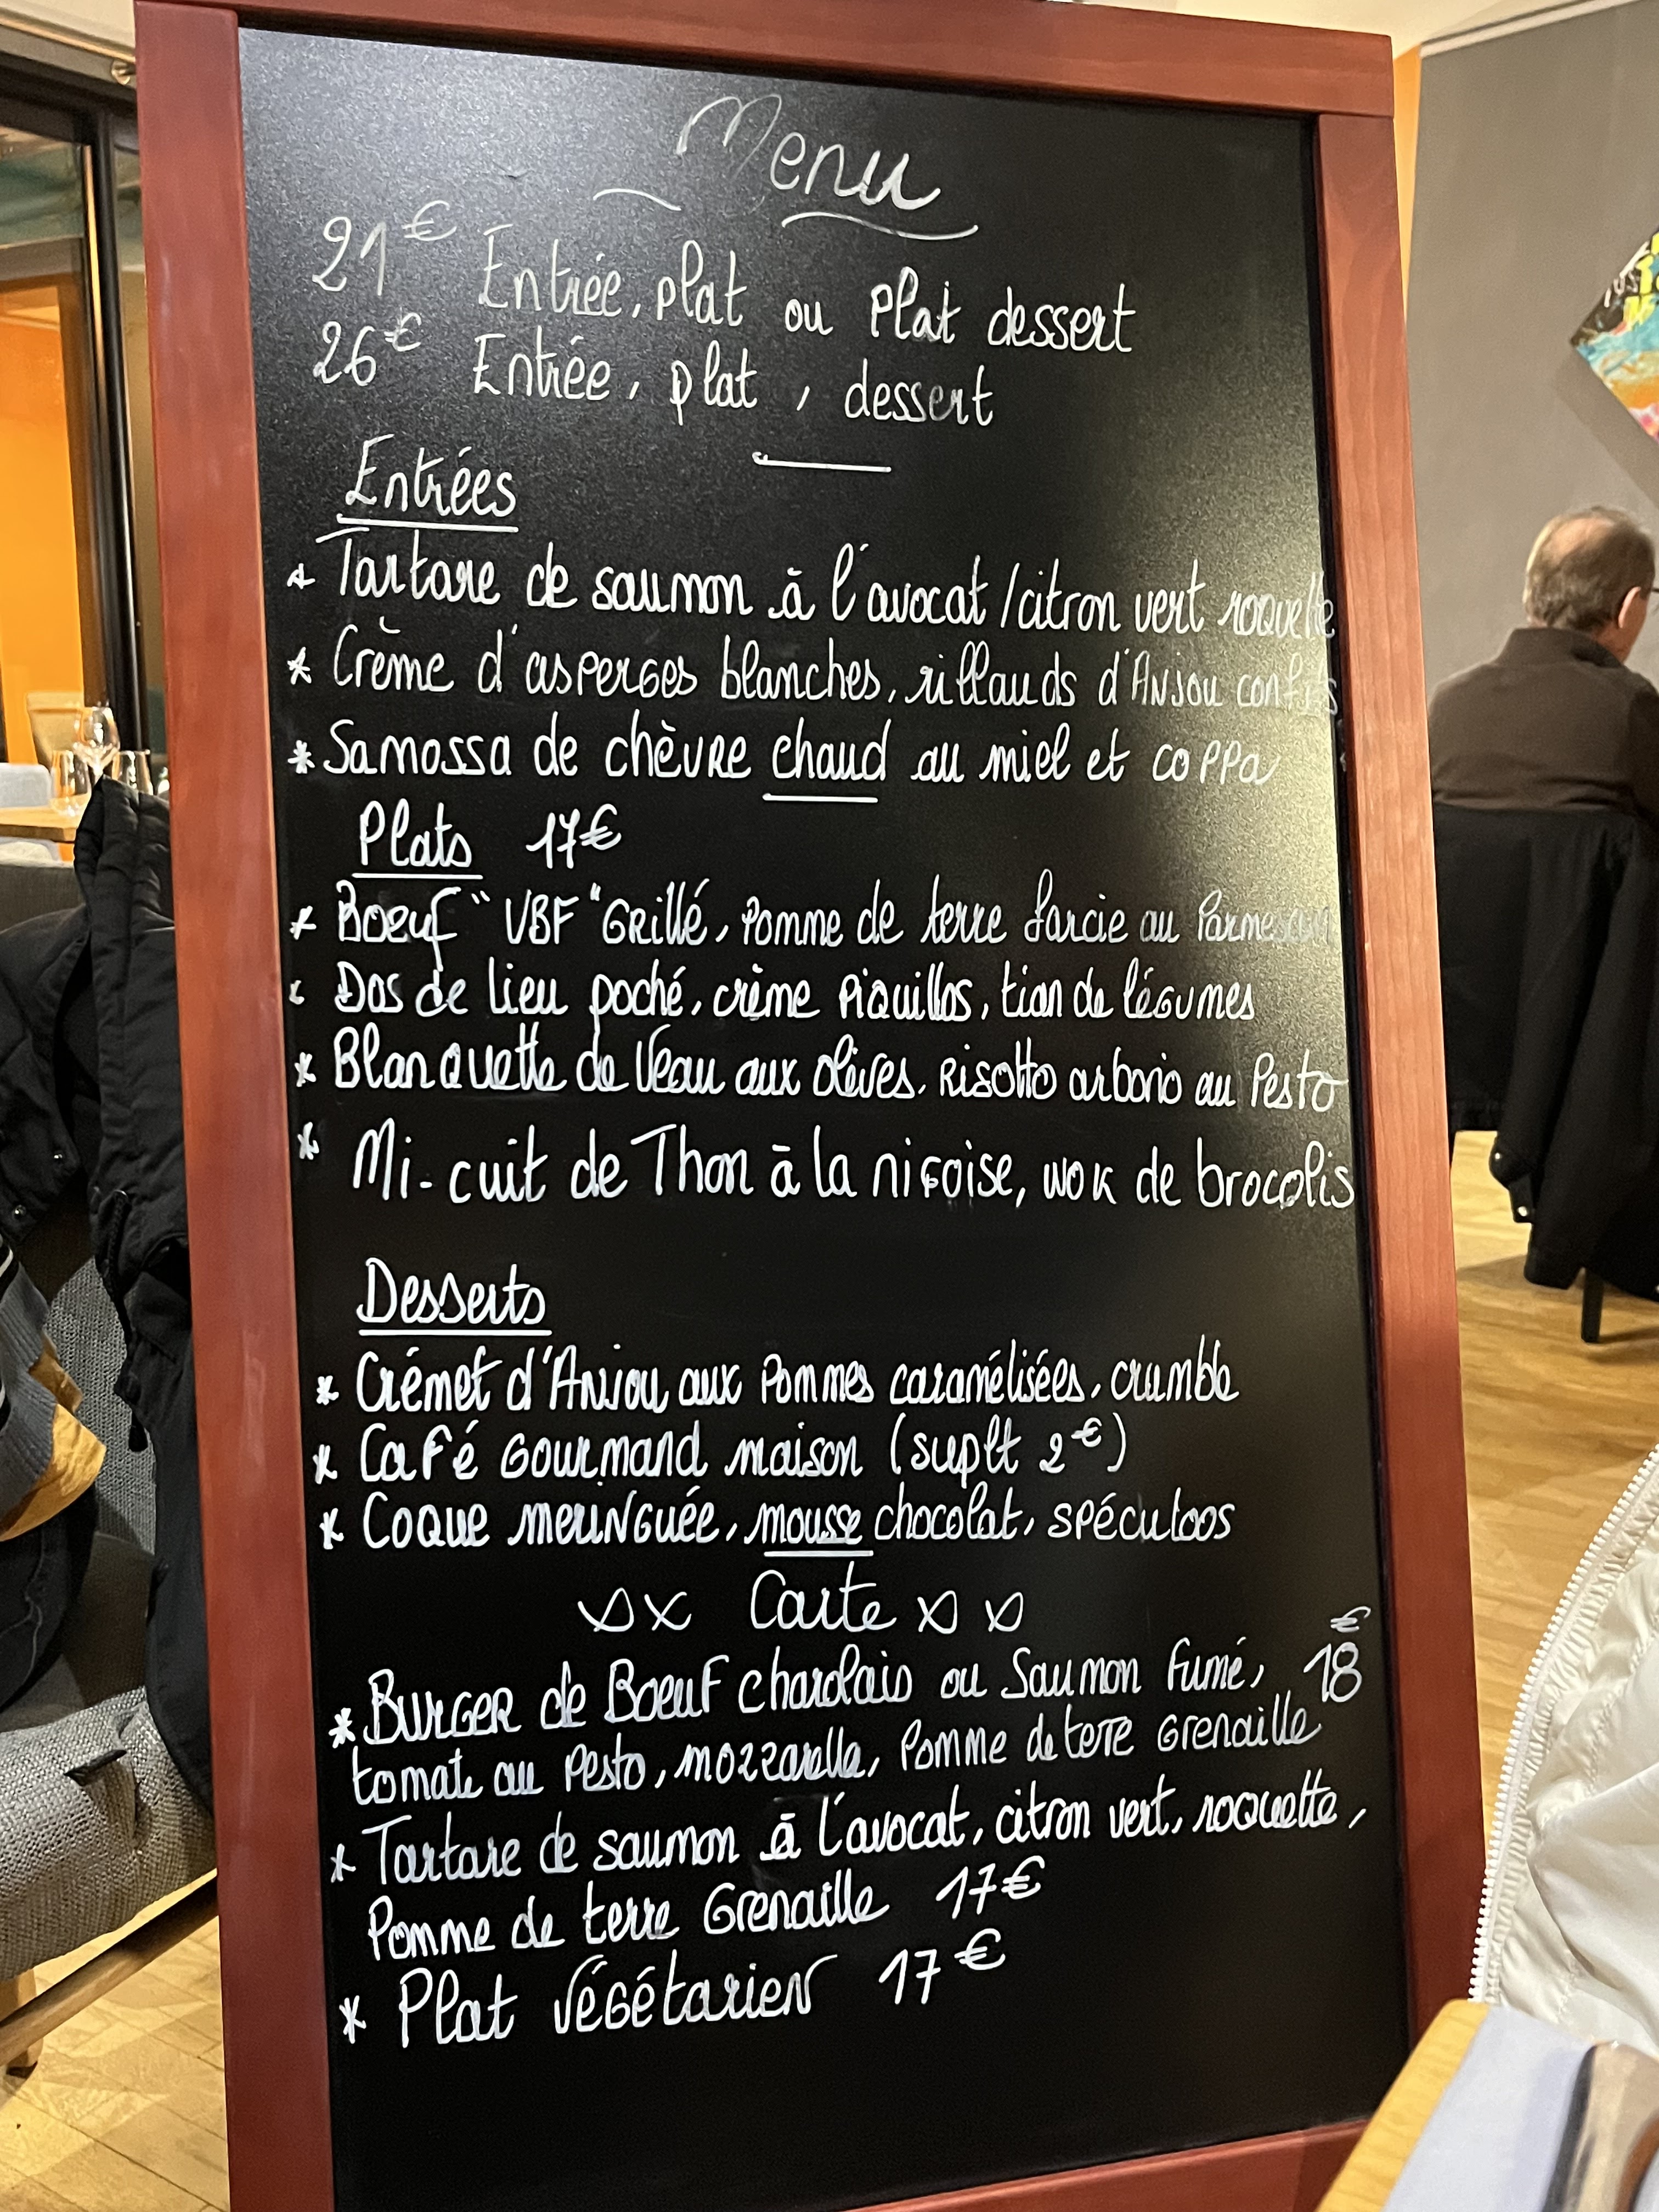 Menu
21€ Entrée, plat ou Plat dessert
26€ Entrée, plat, dessert
Entrées
* Tartare de saumon à l'avocat /citron vert roquette
* Crème d'asperges blanches, rillauds d'Anjou confits
* Samossa de chèvre chaud au miel et coppa
Plats 17€
* Boeuf "VBF" Grillé, Pomme de terre farcie au Parmesan
* Dos de lieu poché, crème Piquillos, tian de légumes
* Blanquette de Veau aux olives, Risotto arborio au Pesto
* Mi-cuit de Thon à la niçoise, wok de brocolis
Desserts
* Crémet d'Anjou aux Pommes caramélisées, crumble
* Café Gourmand maison (suplt 2€)
* Coque meringuée, mousse chocolat, spéculoos
Carte
* Burger de Boeuf charolais ou Saumon fumé, 18€
tomate au Pesto, mozzarella, Pomme de terre Grenaille
* Tartare de saumon à l'avocat, citron vert, roquette,
Pomme de terre Grenaille 17€
* Plat végétarien 17€